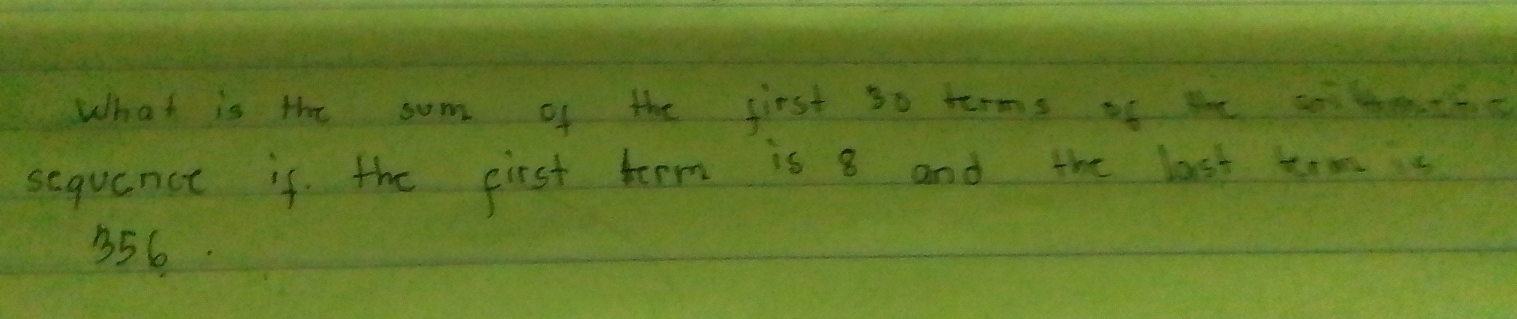 What is the sum of the first 30 terms of the arithmetic
sequence if. the first term is 8 and the last term is
356.